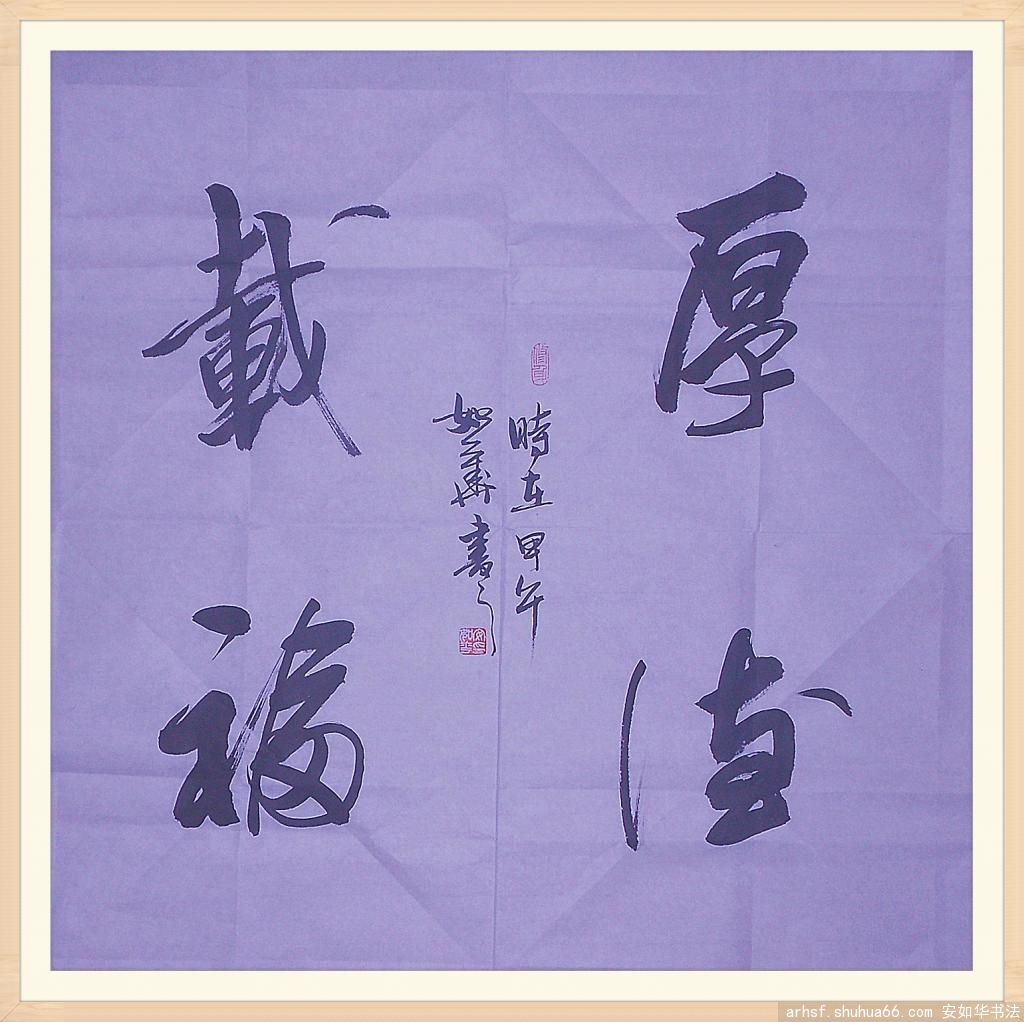 厚德
載福
時在甲午
如華書
arhsf.shuhua66.com 安如华书法